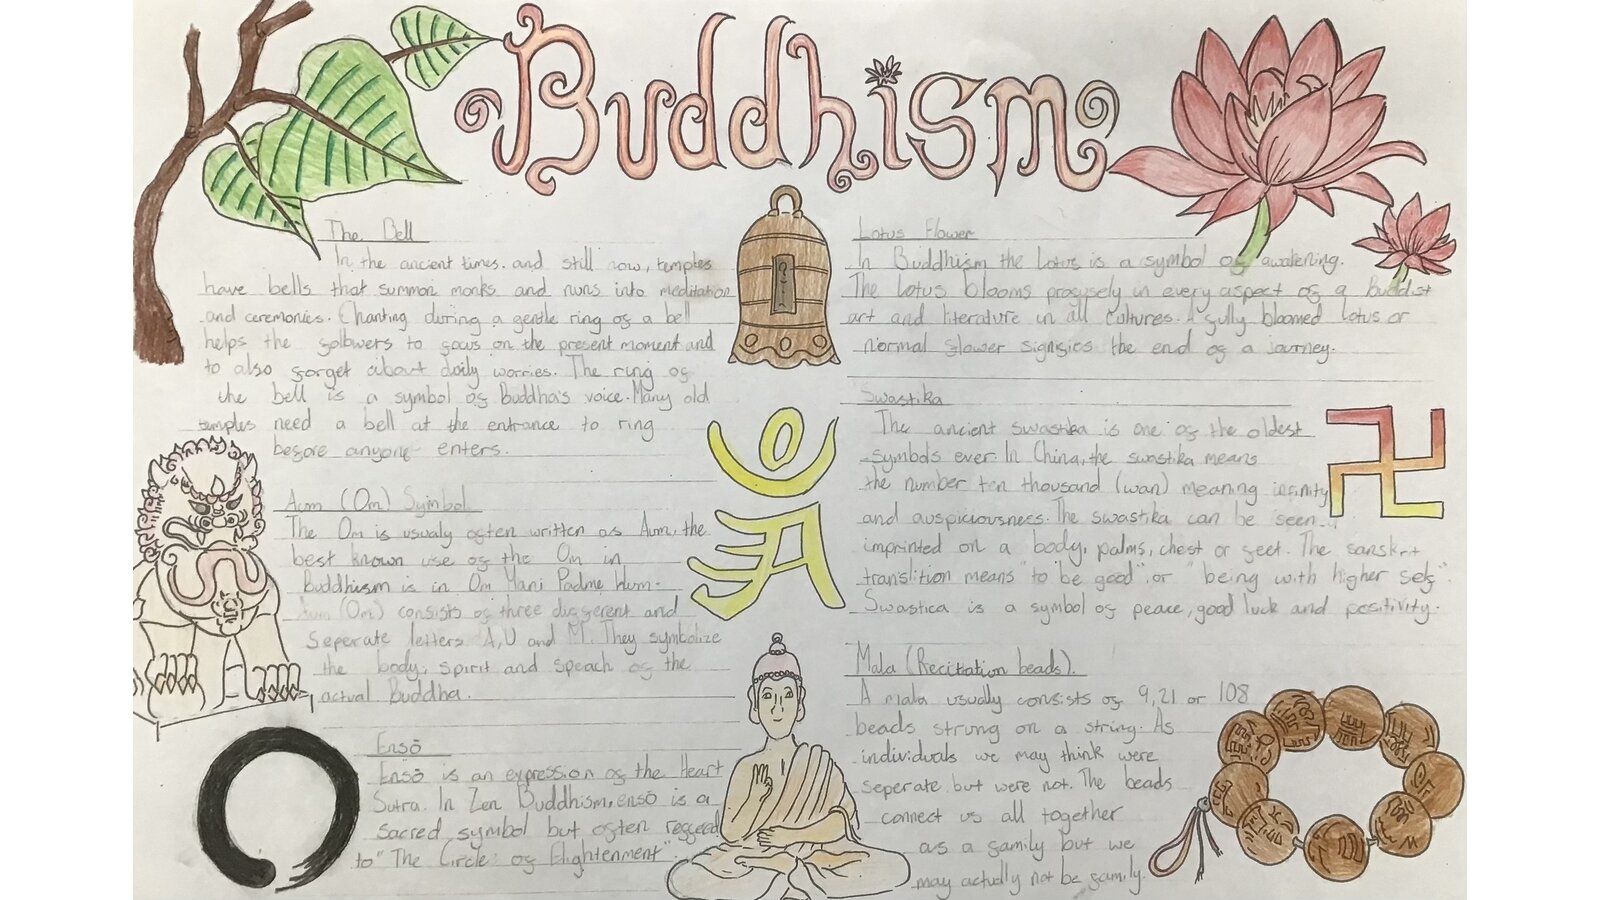 Buddhism
The Bell
In the ancient times. and still now, temples
have bells that summon monks and nuns into meditation
and ceremonies. Chanting during a gentle ring of a bell
helps the follwers to focus on the present moment and
to also forget about daily worries. The ring of
the bell is a symbol of Buddha's voice. Many old
temples need a bell at the entrance to ring
before anyone enters.
Aum (Om) Symbol
The Om is usualy often written as Aum, the
best known use of the Om in
Buddhism is in Om Mani Padme Hum.
Aum (Om) consists of three different and
seperate letters A, U and M. They symbolize
the body, spirit and speach of the
actual Buddha.
Ensō
Ensō is an expression of the Heart
Sutra. In Zen Buddhism, ensō is a
sacred symbol but often
to "The Circle of Elightenment".
Lotus Flower
In Buddhism the Lotus is a symbol of awakening.
The Lotus blooms profusely in every aspect of a Buddist
art and literature in all cultures. A fully bloomed lotus or
normal flower signifies the end of a journey.
Swastika
The ancient swastika is one of the oldest
symbols ever. In China, the swastika means
the number ten thousand (wan) meaning infinity
and auspiciousness. The swastika can be seen
imprinted on a body, palms, chest or feet. The sanskrit
translition means "to be good", or "being with higher self".
Swastica is a symbol of peace, good luck and positivity.
Mala (Recitation beads).
A mala usually consists of 9, 21 or 108
beads strung on a string. As
individuals we may think were
seperate but were not. The beads
connect us all together
as a family but we
may actually not be family.